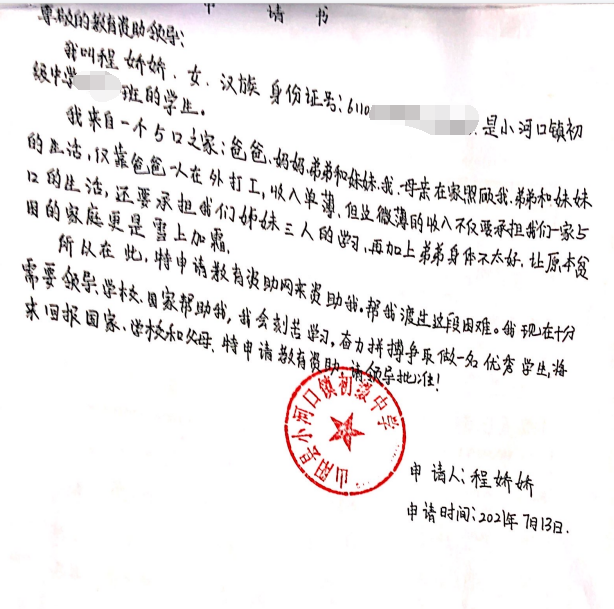 申请书
尊敬的教育资助领导:
我叫程娇娇、女、汉族 身份证号:6110 是小河口镇初
级中学 班的学生。
我来自一个5口之家:爸爸、妈妈、弟弟和妹妹、我、母亲在家照顾我、弟弟和妹妹
的生活,仅靠爸爸一人在外打工,收入单薄、但这微薄的收入不仅要承担我们一家5
口的生活,还要承担我们姊妹三人的学习,再加上弟弟身体不太好、让原本贫
困的家庭更是雪上加霜。
所以在此,特申请教育资助网来资助我、帮我渡过这段困难。我现在十分
需要领导、学校、国家帮助我,我会刻苦学习,奋力拼搏争取做一名优秀学生,将
来回报国家、学校和父母、特申请教育资助,请领导批准!
山阳县小河口镇初级中学
申请人:程娇娇
申请时间:2021年7月13日.